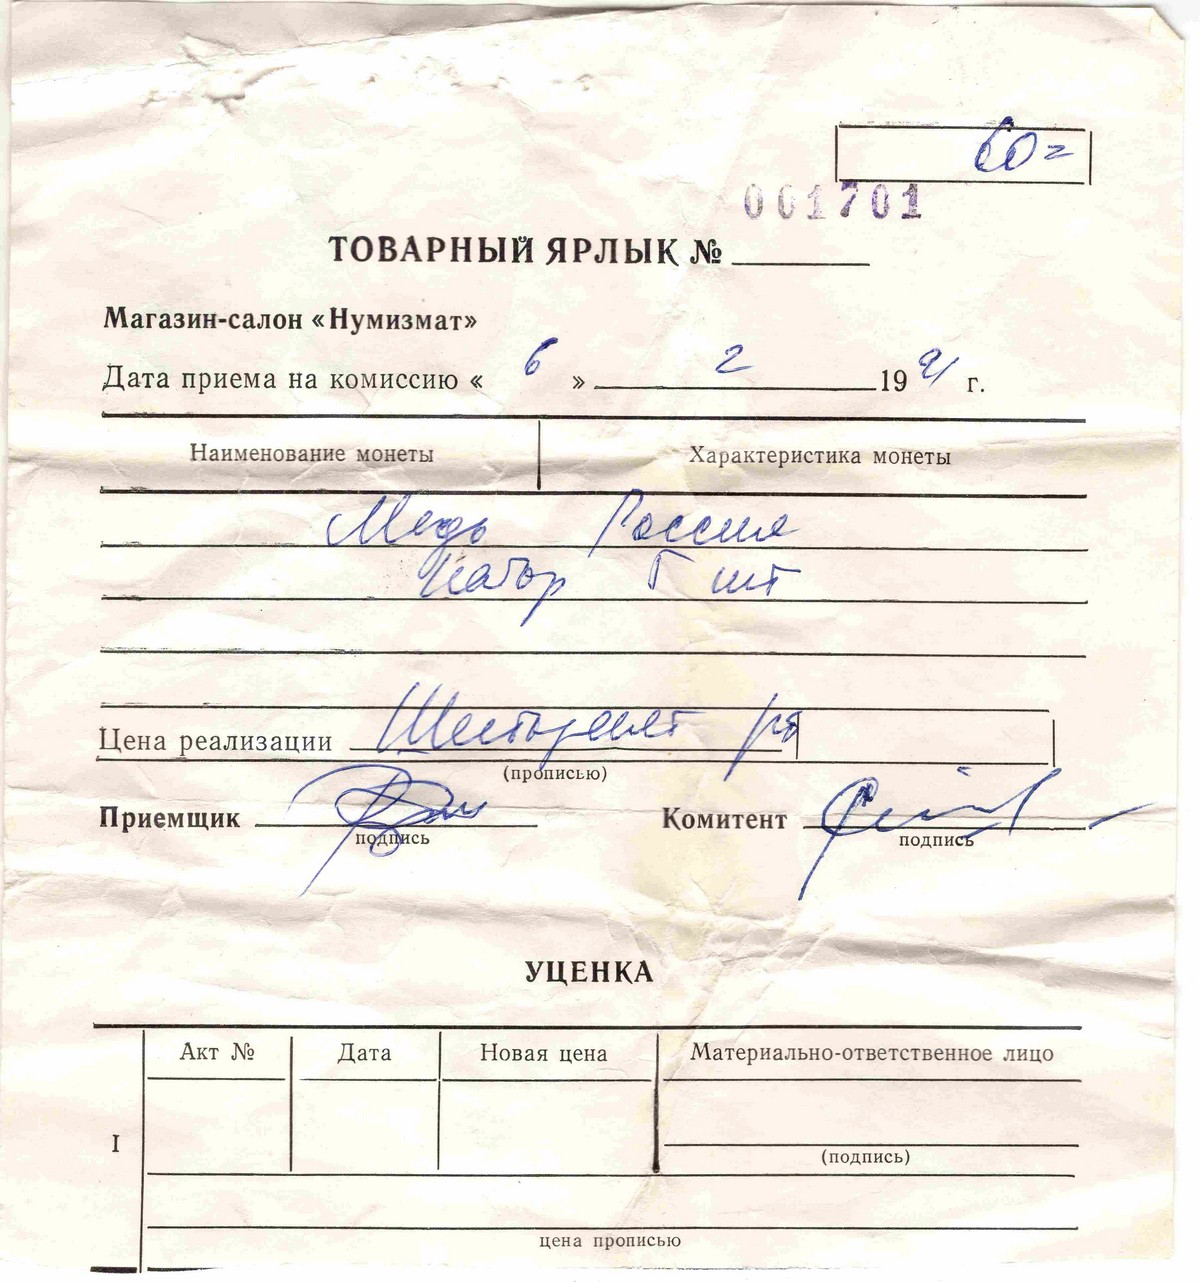 60=
001701
ТОВАРНЫЙ ЯРЛЫК №
Магазин-салон «Нумизмат»
Дата приема на комиссию « 6 » 2 1991 г.
Наименование монеты Характеристика монеты
Медь Россия
Набор 5 шт
Цена реализации Шестьдесят рб
(прописью)
Приемщик Комитент
подпись подпись
УЦЕНКА
Акт № Дата Новая цена Материально-ответственное лицо
I
(подпись)
цена прописью